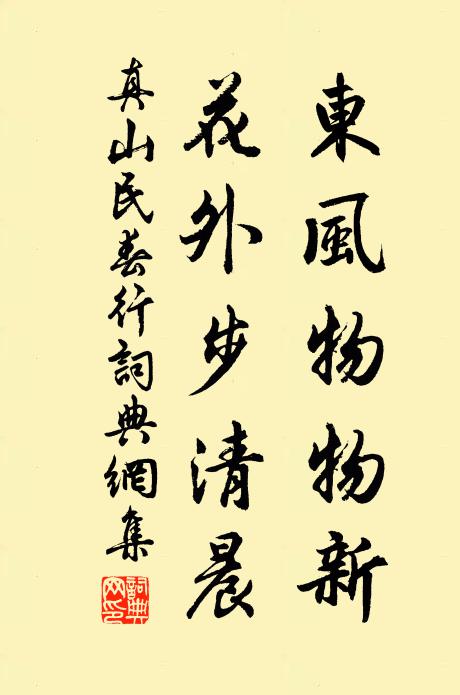 東風物物新
花外步清晨
真山民春行詞典網集
詞典
网印